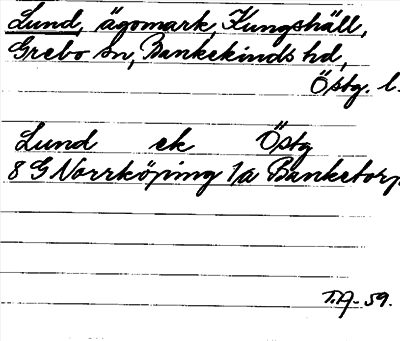 Lund, ägomark, Kungshäll,
Grebo sn, Bankekinds hd,
Östg. l.
Lund ek Östg
8 G Norrköping 1a Banketorp
T.A. 59.